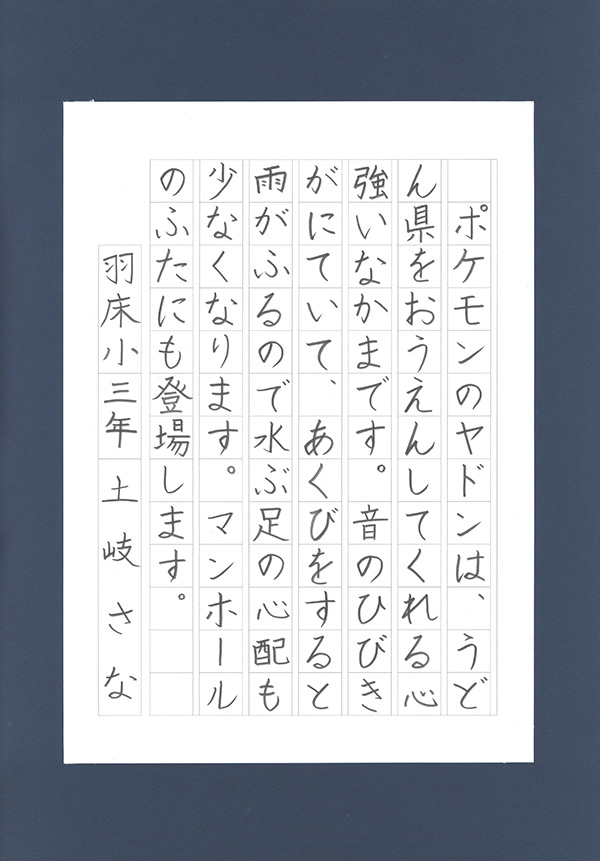 ポケモンのヤドンは、うど
ん県をおうえんしてくれる心
強いなかまです。音のひびき
がにていて、あくびをすると
雨がふるので水ぶ足の心配も
少なくなります。マンホール
のふたにも登場します。
羽床小三年 土岐さな